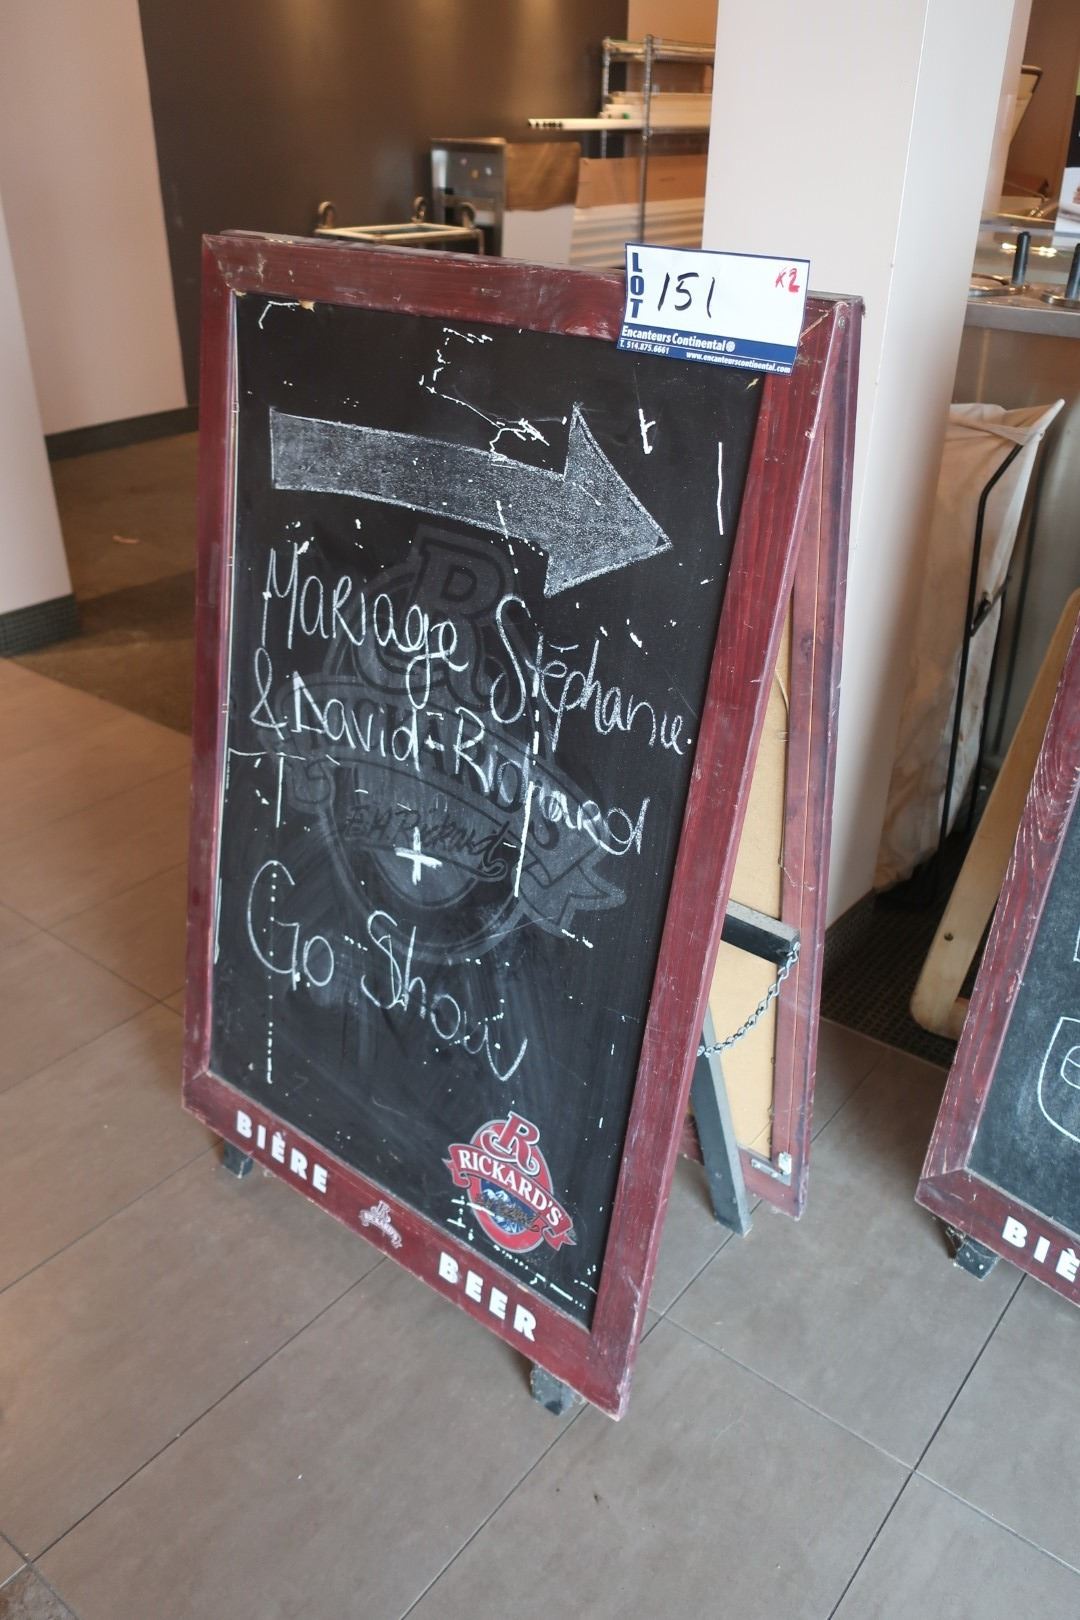 LOT 151 x2
Encanteurs Continental®
T. 514.875.6661 www.encanteurscontinental.com
Mariage Stéphanie
& David-Richard
+
Go-Show
R
RICKARD'S
BIÈRE BEER
BIÈ